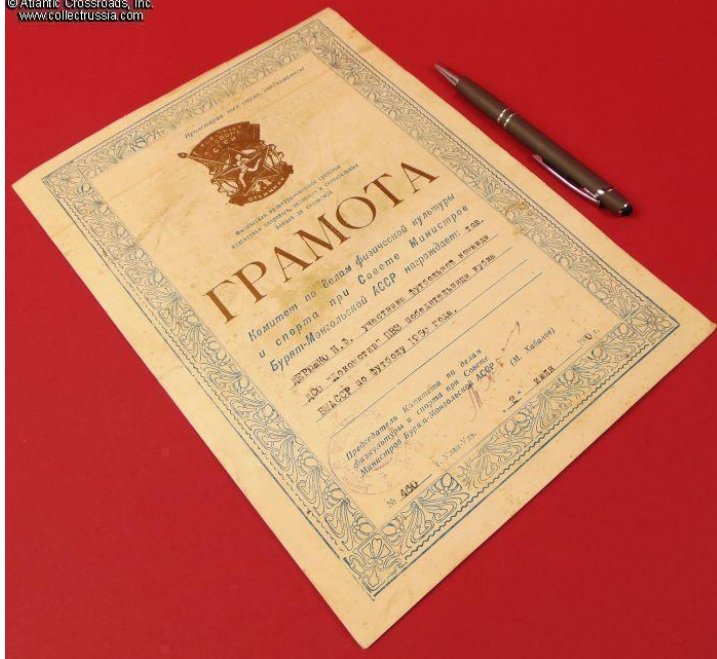 © Atlantic Crossroads, Inc.
www.collectrussia.com
Пролетарии всех стран, соединяйтесь!
СССР
ГРАМОТА
Комитет по делам физической культуры
и спорта при Совете Министров
Бурят-Монгольской АССР награждает: тов.
участника футбольной команды
ДСО "Локомотив" ПВЗ победительница кубка
БМАССР по футболу 1950 года.
Председатель Комитета по делам
физкультуры и спорта при Совете
Министров Бурят-Монгольской АССР (М. Хабалов)
№ 460